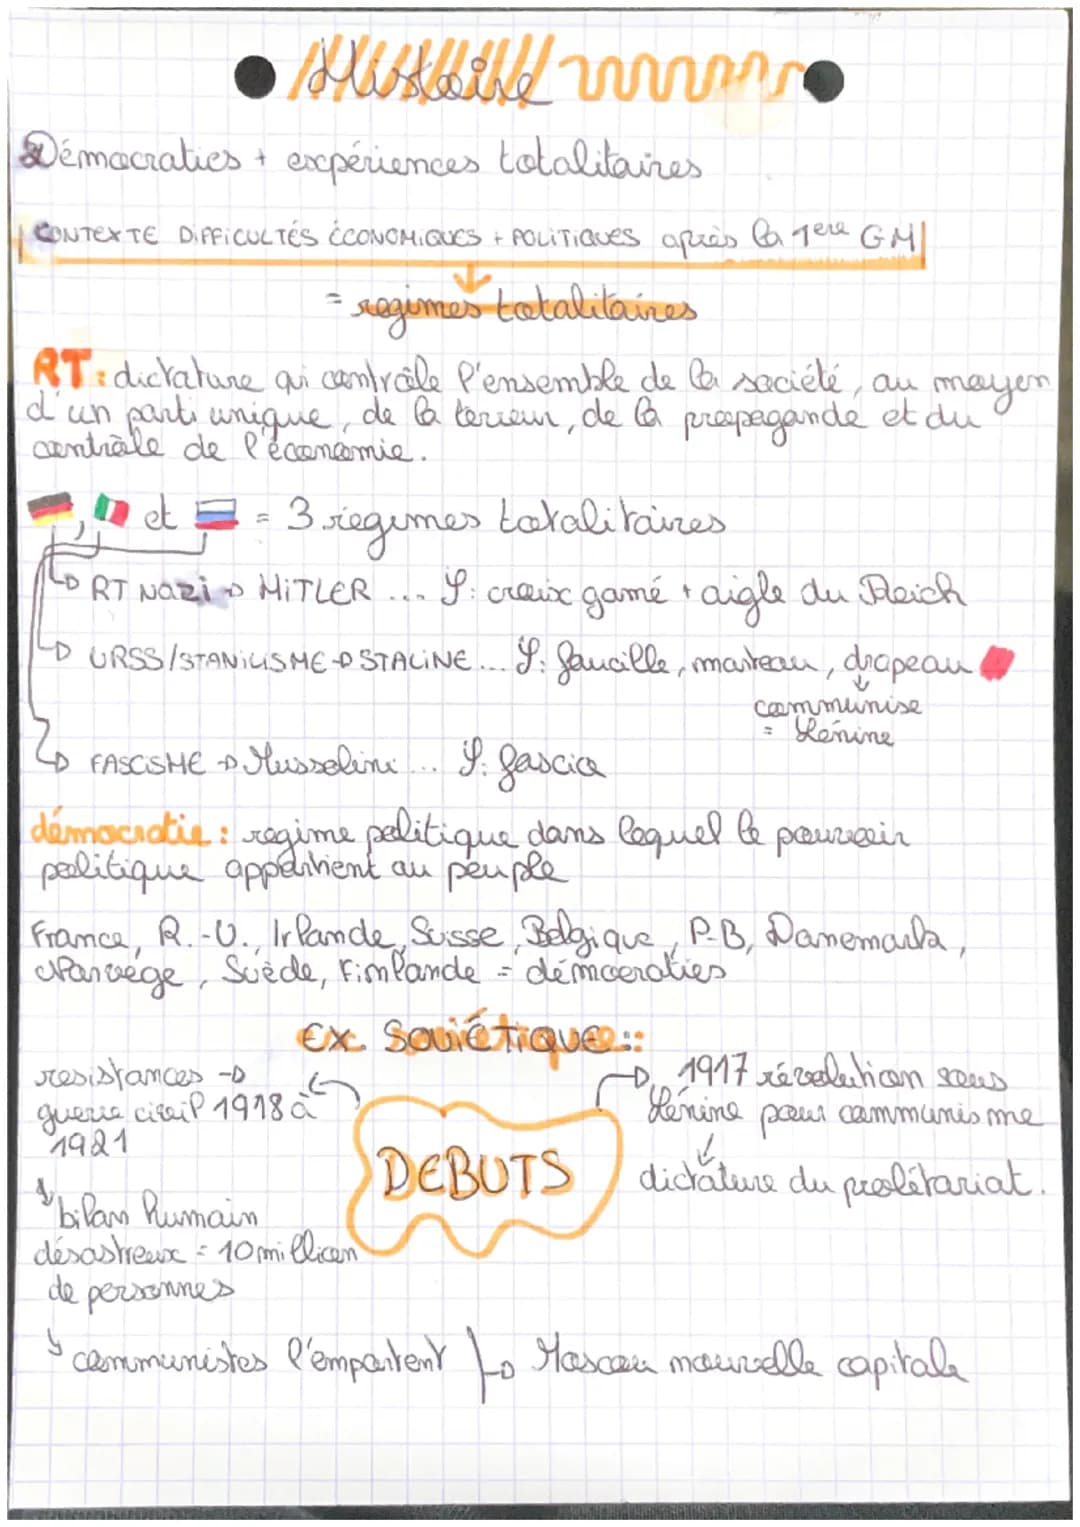 Histoire
Démocraties + expériences totalitaires
CONTEXTE DIFFICULTÉS ÉCONOMIQUES + POLITIQUES après la 1ere GM
= regimes totalitaires
RT : dictature qui contrôle l'ensemble de la société, au moyen
d'un parti unique, de la terreur, de la propagande et du
contrôle de l'économie.
, et = 3 regimes totalitaires
RT Nazi → HITLER ... S: croix gamé + aigle du Reich
URSS/STANILISME → STALINE ... S: faucille, marteau, drapeau
communise
= Lénine
FASCISME → Mussolini ... S: fascia
démocratie : regime politique dans lequel le pouvoir
politique appartient au peuple
France, R.-U., Irlande, Suisse, Belgique, P-B, Danemark,
Norvége, Suède, Finlande = démocraties
Ex. SOVIÉTIQUE ::
resistances →
guerre civil 1918 à
1921
1917 révolution sous
Lénine pour communisme
DEBUTS
dictature du prolétariat.
bilan humain
désastreux = 10 million
de personnes
communistes l'emportent → Moscou nouvelle capitale